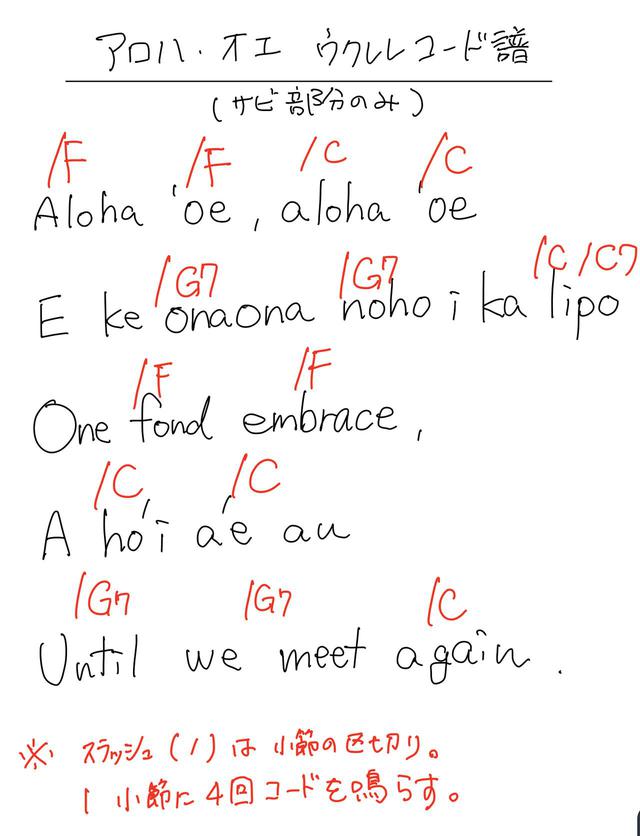 アロハ・オエ ウクレレコード譜
(サビ部分のみ)
/F /F /C /C
Aloha 'oe, aloha 'oe
/G7 /G7 /C /C7
E ke onaona noho i ka lipo
/F /F
One fond embrace,
/C /C
A ho'i a'e au
/G7 /G7 /C
Until we meet again.
※ スラッシュ(/)は小節の区切り。
1小節に4回コードを鳴らす。